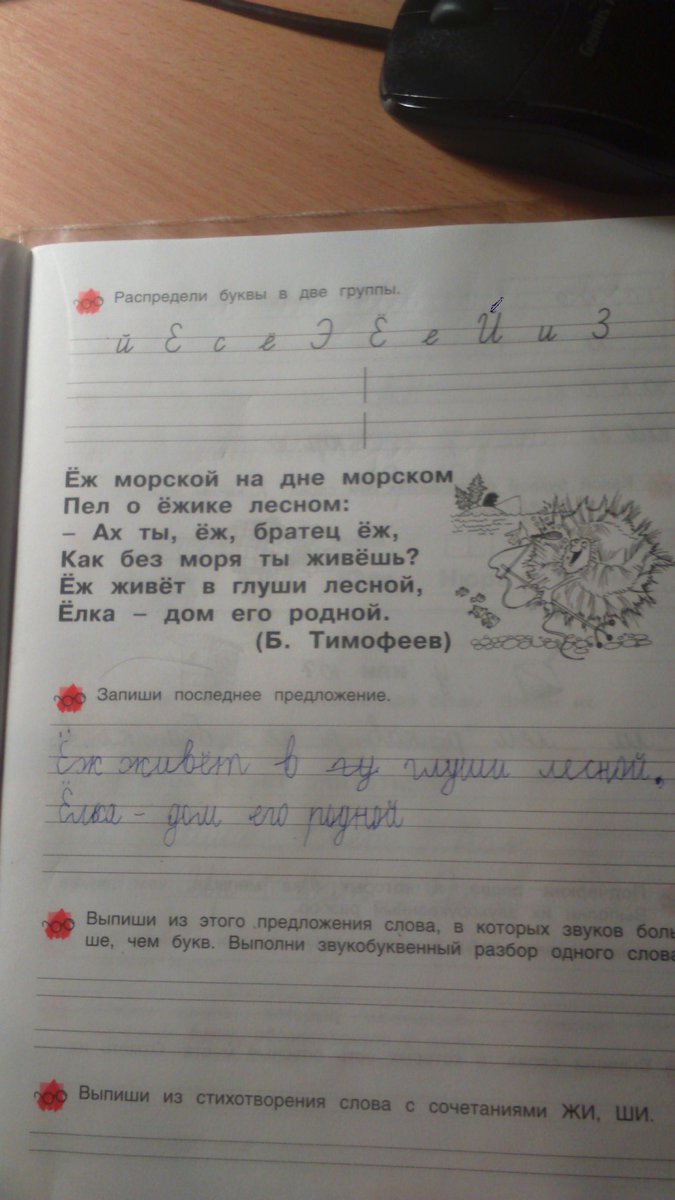 Распредели буквы в две группы.
й Е с ё Э Ё е Й и З
Ёж морской на дне морском
Пел о ёжике лесном:
– Ах ты, ёж, братец ёж,
Как без моря ты живёшь?
Ёж живёт в глуши лесной,
Ёлка – дом его родной.
(Б. Тимофеев)
Запиши последнее предложение.
Ёж живёт в гу глуши лесной.
Ёлка – дом его родной
Выпиши из этого предложения слова, в которых звуков боль
ше, чем букв. Выполни звукобуквенный разбор одного слова
Выпиши из стихотворения слова с сочетаниями ЖИ, ШИ.